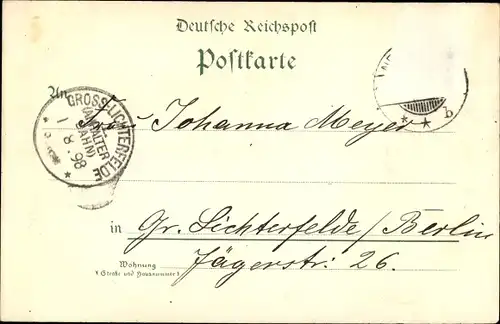 Deutsche Reichspost
Postkarte
An
GROSS-LICHTERFELDE
(ANHALTER
BAHN)
1 8.98
* *
b
* *
Frau Johanna Meyer
in Gr. Lichterfelde/Berlin
Jägerstr: 26.
Wohnung
(Straße und Hausnummer)